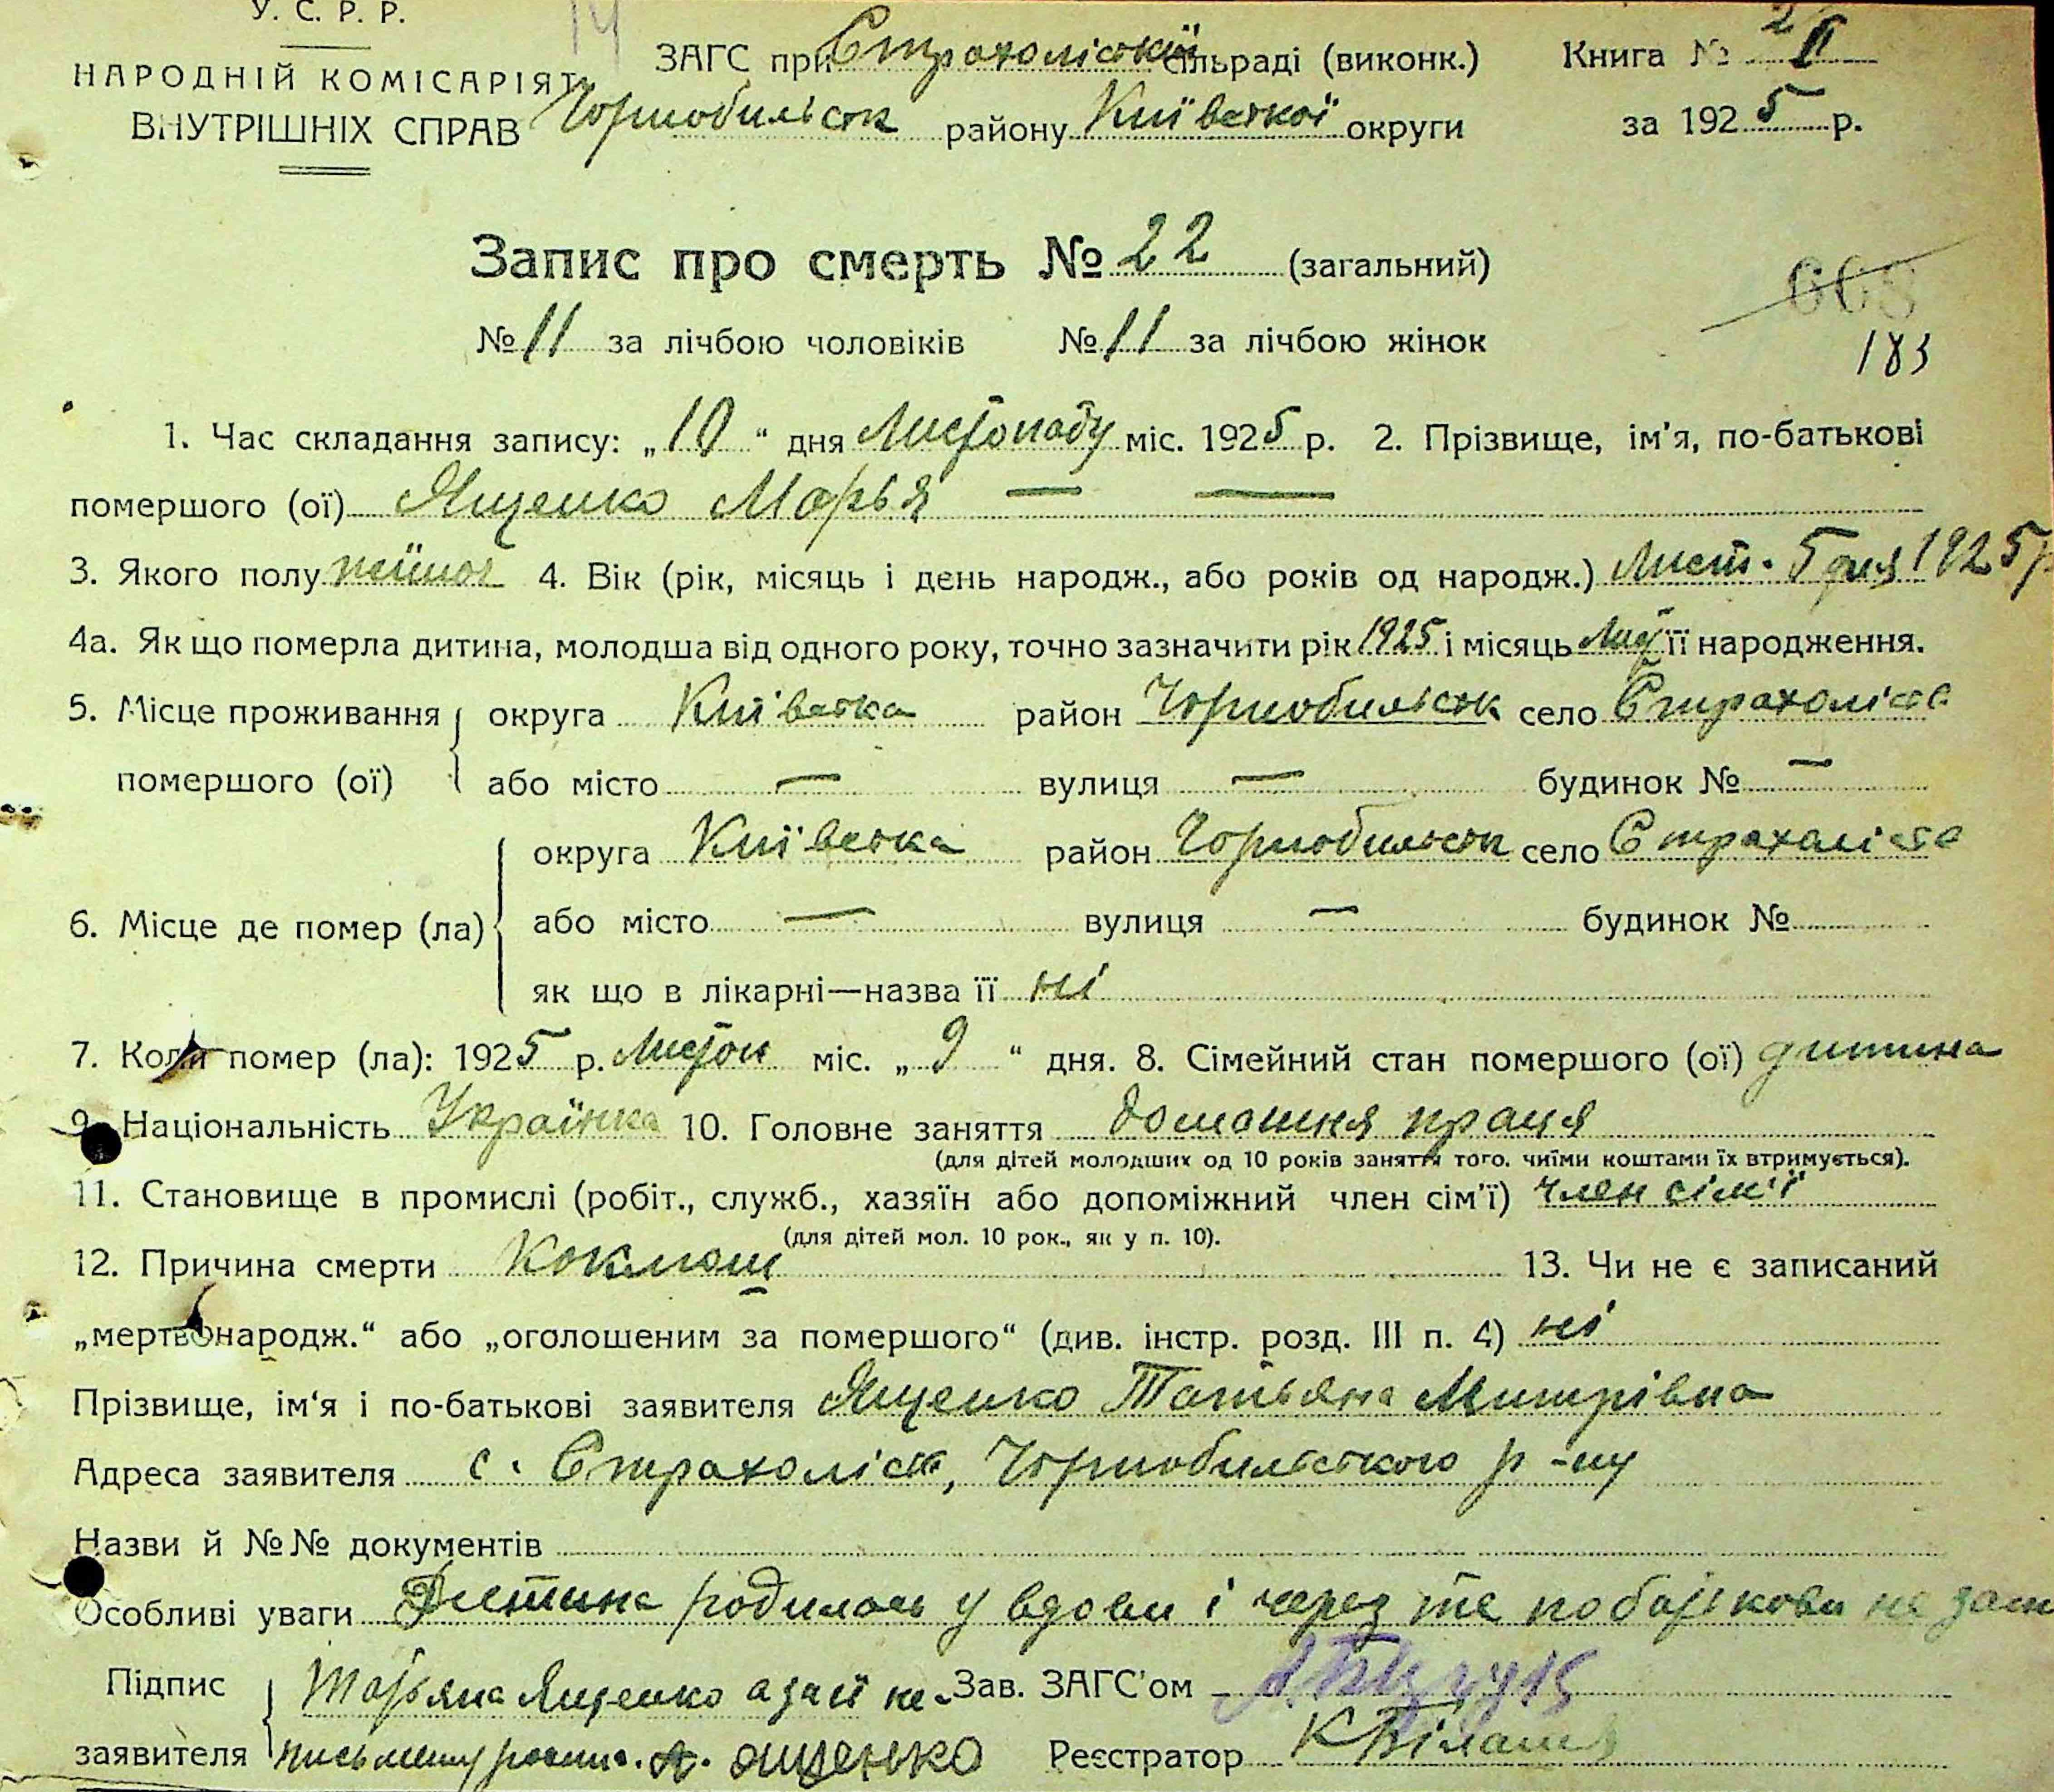 У. С. Р. Р.
НАРОДНІЙ КОМІСАРІЯТ
ВНУТРІШНІХ СПРАВ
14
ЗАГС при Страхоліській сільраді (виконк.) Книга № 2
Чорнобильськ району Київської округи за 1925 р.
Запис про смерть № 22 (загальний)
№ 11 за лічбою чоловіків № 11 за лічбою жінок
668
183
1. Час складання запису: „10“ дня Листопаду міс. 1925 р. 2. Прізвище, ім’я, по-батькові
помершого (ої) Ященко Марья — —
3. Якого полу жіноч 4. Вік (рік, місяць і день народж., або років од народж.) Лист. 5 дня 1925 р
4а. Як що померла дитина, молодша від одного року, точно зазначити рік 1925 і місяць Лис її народження.
5. Місце проживання округа Київська район Чорнобильськ село Страхолісся
помершого (ої) або місто — вулиця — будинок № —
округа Київська район Чорнобильськ село Страхолісся
6. Місце де помер (ла) або місто — вулиця — будинок №
як що в лікарні—назва її ні
7. Коли помер (ла): 1925 р. Листоп міс. „9“ дня. 8. Сімейний стан помершого (ої) дитина
9. Національність Українка 10. Головне заняття домашня праця
(для дітей молодших од 10 років заняття того, чиїми коштами їх втримується).
11. Становище в промислі (робіт., служб., хазяїн або допоміжний член сім’ї) член сім'ї
(для дітей мол. 10 рок., як у п. 10).
12. Причина смерти Коклюш 13. Чи не є записаний
„мертвонародж.“ або „оголошеним за помершого“ (див. інстр. розд. III п. 4) ні
Прізвище, ім‘я і по-батькові заявителя Ященко Татьяна Митрівна
Адреса заявителя с. Страхоліся, Чорнобильського р-ну
Назви й №№ документів
Особливі уваги Дитина родилась у вдови і через те по батькови не
Підпис Татьяна Ященко а за її не- Зав. ЗАГС’ом
заявителя письменну роспис. А. ященко Реєстратор К Білаш